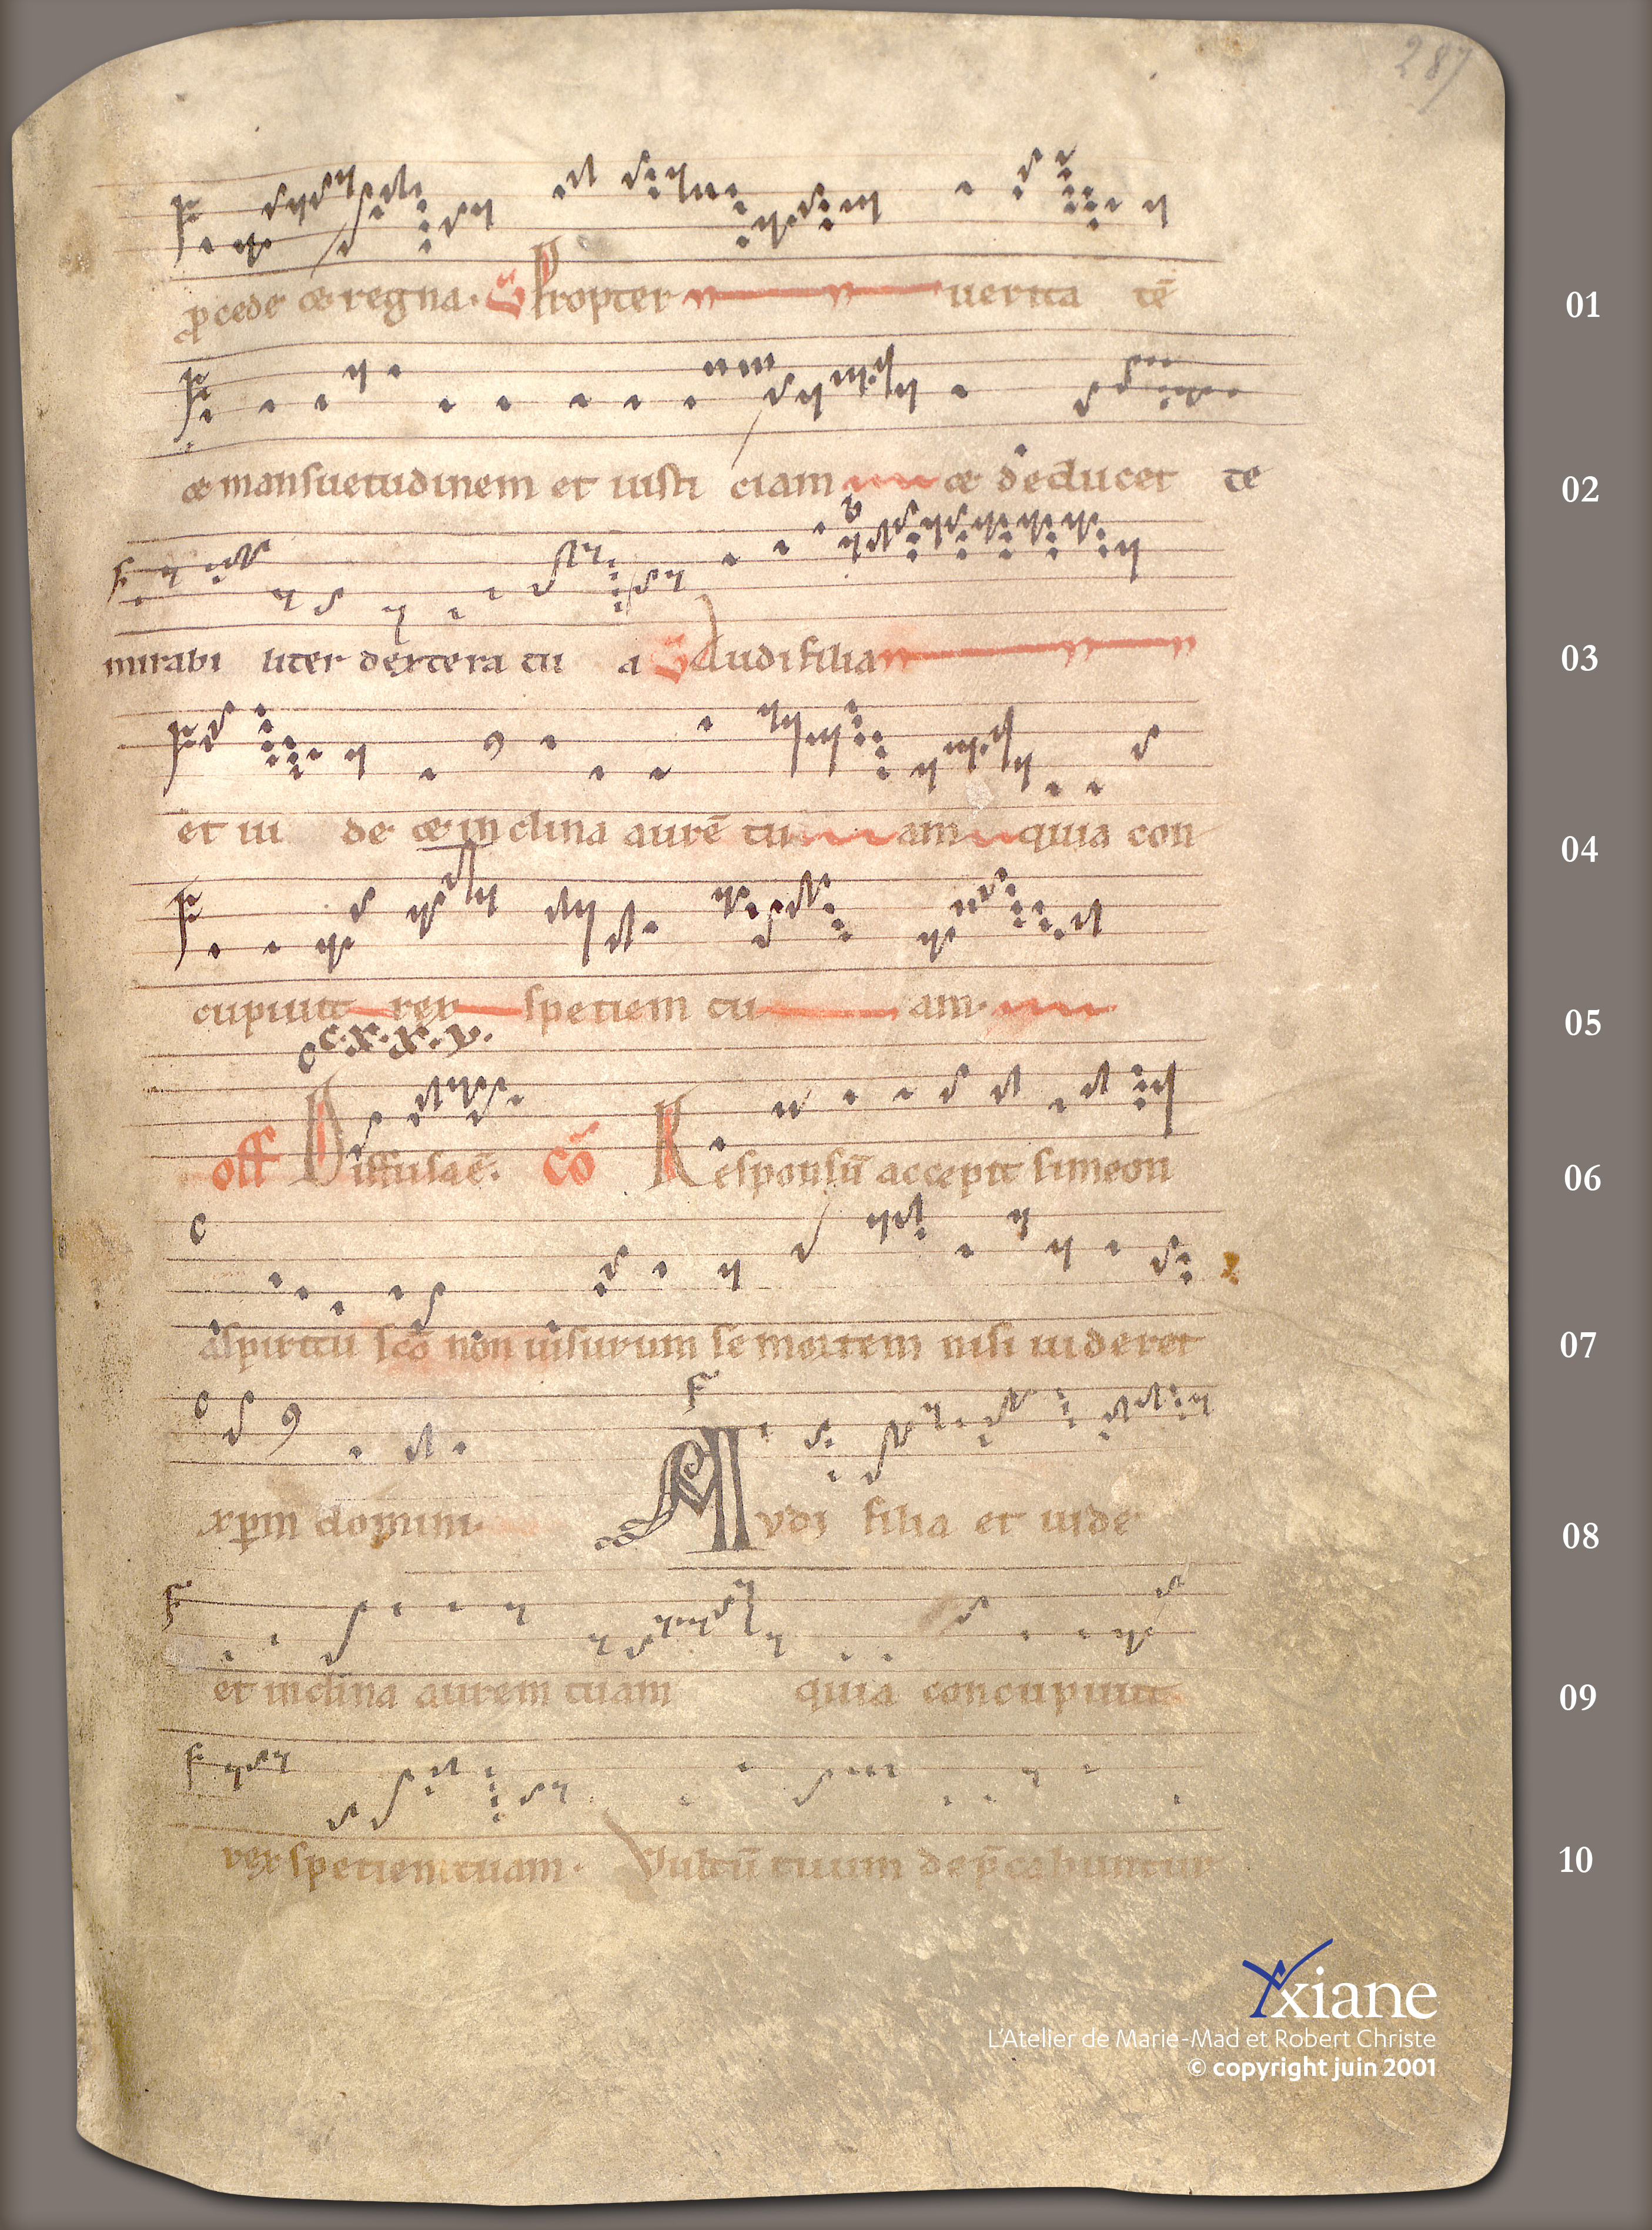 287
p̄cede & regna. G Propter uerita tē 01
& mansuetudinem et iusti ciam & deducet te 02
mirabi liter dextera tu a G Audi filia 03
et ui de & inclina aurē tu am quia con 04
cupiuit rex speciem tu am. 05
c.x.x.v.
off Diffusa ē. cō Responsū accepit simeon 06
a spiritu sc̄o non uisurum se mortem nisi uideret 07
xp̄m domini. Avdi filia et uide 08
et inclina aurem tuam quia concupiuit 09
rex speciem tuam. Vultū tuum dep̄cabuntur 10
xiane
L'Atelier de Marie-Mad et Robert Christe
© copyright juin 2001